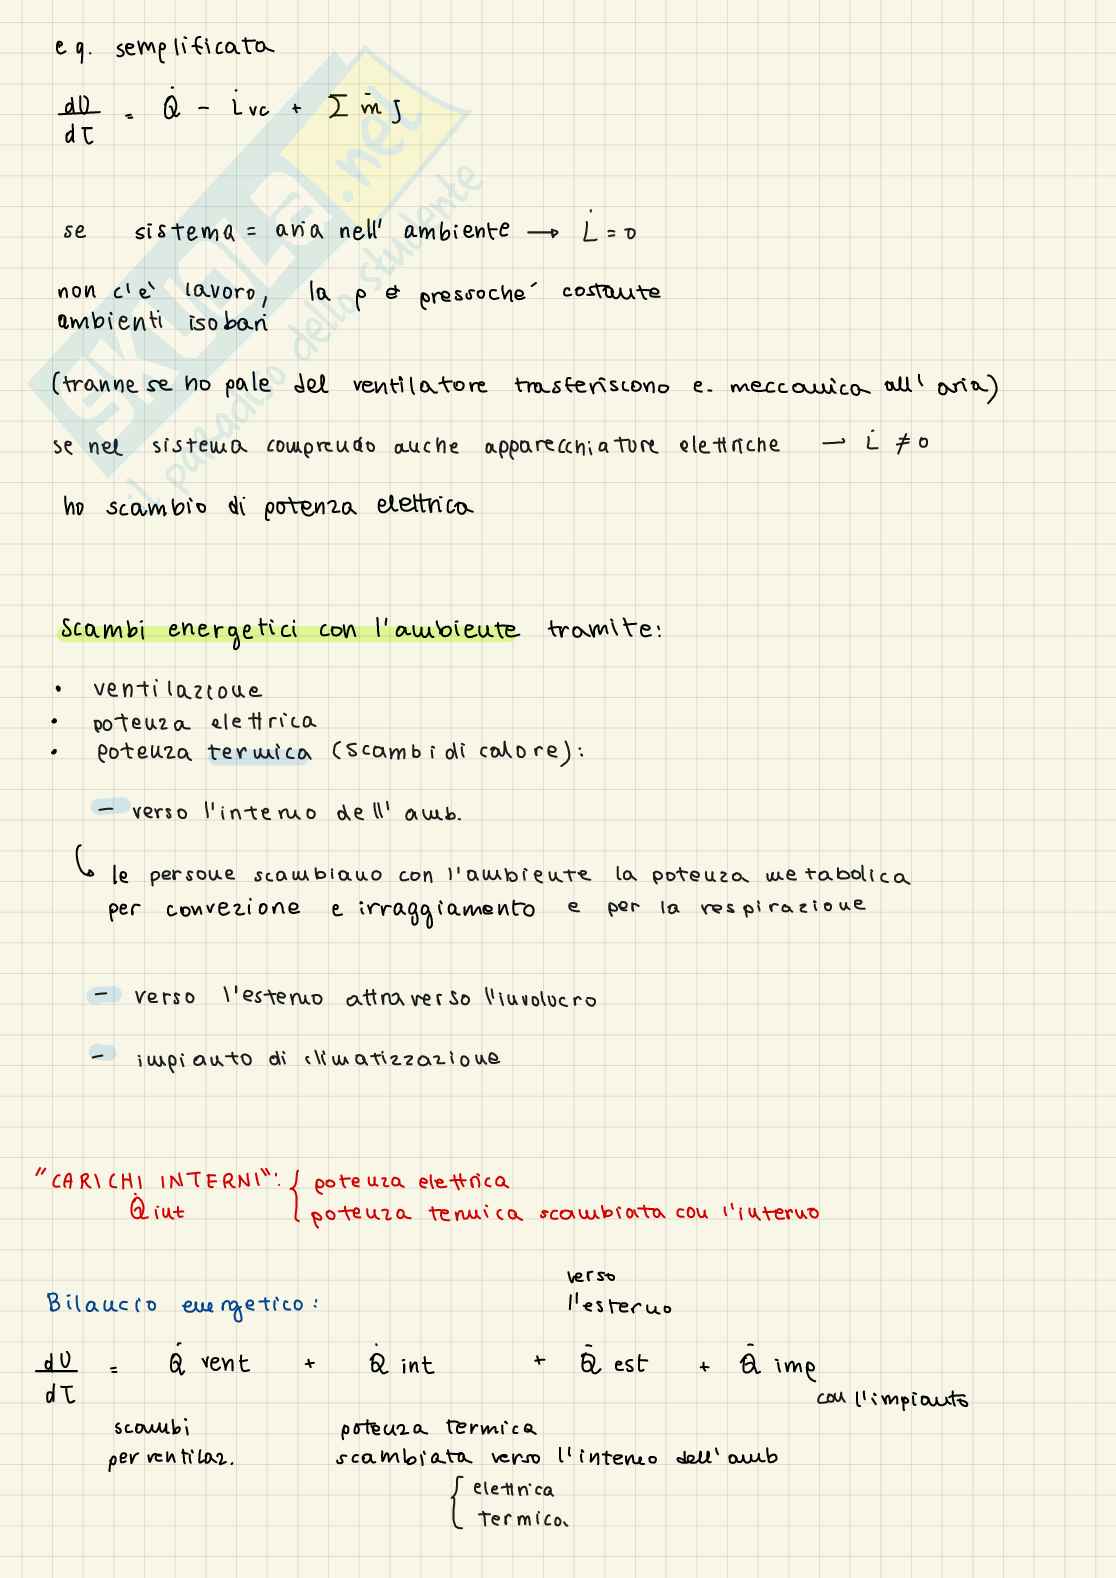 eq. semplificata
dU/dτ = Q̇ - L̇vc + Σ ṁ J
se sistema = aria nell' ambiente → L̇ = 0
non c'è lavoro, la p è pressoché costante
ambienti isobari
(tranne se ho pale del ventilatore trasferiscono e. meccanica all' aria)
se nel sistema comprendo anche apparecchiature elettriche → L̇ ≠ 0
ho scambio di potenza elettrica
SKUOLA.net
il paradiso dello studente
Scambi energetici con l'ambiente tramite:
• ventilazione
• potenza elettrica
• potenza termica (scambi di calore):
- verso l'interno dell' amb.
↳ le persone scambiano con l'ambiente la potenza metabolica
per convezione e irraggiamento e per la respirazione
- verso l'esterno attraverso l'involucro
- impianto di climatizzazione
"CARICHI INTERNI": { potenza elettrica
Q̇ int { potenza termica scambiata con l'interno
verso
Bilancio energetico: l'esterno
dU/dτ = Q̇ vent + Q̇ int + Q̇ est + Q̇ imp
con l'impianto
scambi potenza termica
per ventilaz. scambiata verso l'interno dell'amb
{ elettrica
termica